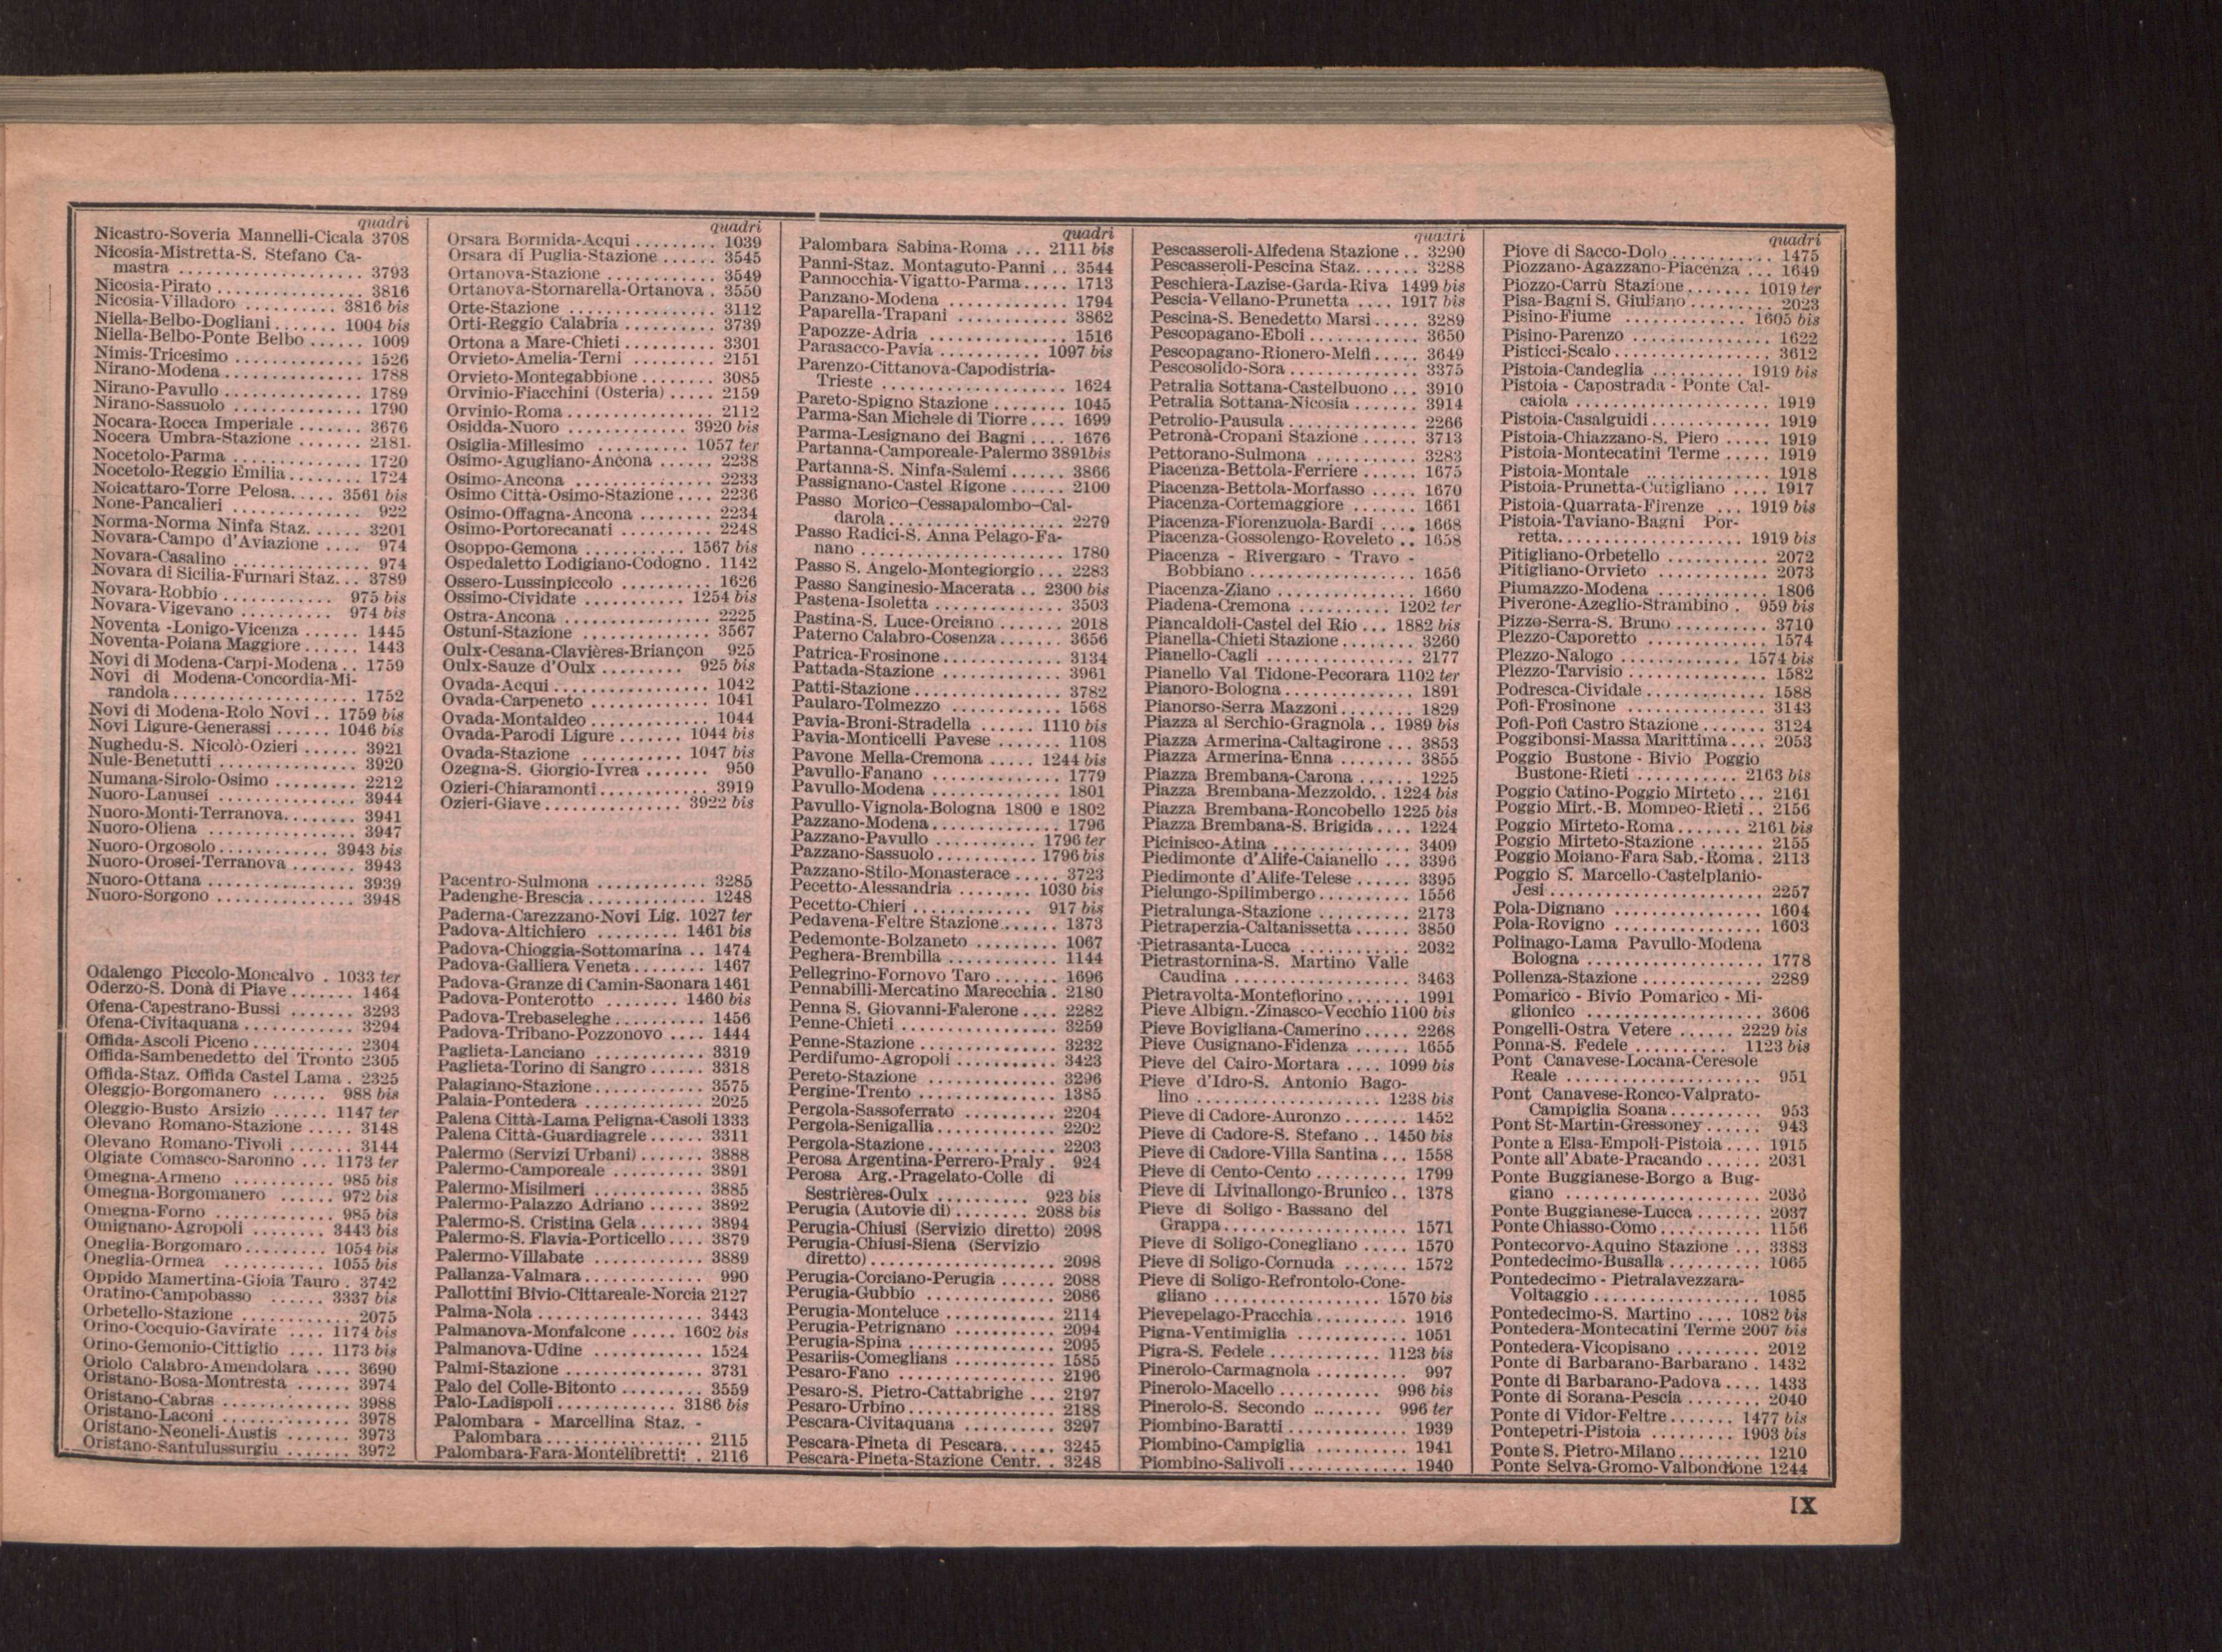 quadri
Nicastro-Soveria Mannelli-Cicala 3708
Nicosia-Mistretta-S. Stefano Ca-
mastra ................... 3793
Nicosia-Pirato ................ 3816
Nicosia-Villadoro .......... 3816 bis
Niella-Belbo-Dogliani ....... 1004 bis
Niella-Belbo-Ponte Belbo ...... 1009
Nimis-Tricesimo .............. 1526
Nirano-Modena ............... 1788
Nirano-Pavullo ............... 1789
Nirano-Sassuolo .............. 1790
Nocara-Rocca Imperiale ....... 3676
Nocera Umbra-Stazione ....... 2181.
Nocetolo-Parma .............. 1720
Nocetolo-Reggio Emilia ........ 1724
Noicattaro-Torre Pelosa. .... 3561 bis
None-Pancalieri .............. 922
Norma-Norma Ninfa Staz. ..... 3201
Novara-Campo d'Aviazione .... 974
Novara-Casalino .............. 974
Novara di Sicilia-Furnari Staz. .. 3789
Novara-Robbio ............ 975 bis
Novara-Vigevano .......... 974 bis
Noventa -Lonigo-Vicenza ...... 1445
Noventa-Poiana Maggiore ...... 1443
Novi di Modena-Carpi-Modena .. 1759
Novi di Modena-Concordia-Mi-
randola ................... 1752
Novi di Modena-Rolo Novi .. 1759 bis
Novi Ligure-Generassi ...... 1046 bis
Nughedu-S. Nicolò-Ozieri ...... 3921
Nule-Benetutti ............... 3920
Numana-Sirolo-Osimo ......... 2212
Nuoro-Lanusei ............... 3944
Nuoro-Monti-Terranova ........ 3941
Nuoro-Oliena ................ 3947
Nuoro-Orgosolo ............ 3943 bis
Nuoro-Orosei-Terranova ....... 3943
Nuoro-Ottana ................ 3939
Nuoro-Sorgono ............... 3948
Odalengo Piccolo-Moncalvo . 1033 ter
Oderzo-S. Donà di Piave ....... 1464
Ofena-Capestrano-Bussi ....... 3293
Ofena-Civitaquana ............ 3294
Offida-Ascoli Piceno ........... 2304
Offida-Sambenedetto del Tronto 2305
Offida-Staz. Offida Castel Lama . 2325
Oleggio-Borgomanero ...... 988 bis
Oleggio-Busto Arsizio ...... 1147 ter
Olevano Romano-Stazione ..... 3148
Olevano Romano-Tivoli ....... 3144
Olgiate Comasco-Saronno ... 1173 ter
Omegna-Armeno ........... 985 bis
Omegna-Borgomanero ...... 972 bis
Omegna-Forno ............. 985 bis
Omignano-Agropoli ........ 3443 bis
Oneglia-Borgomaro ......... 1054 bis
Oneglia-Ormea ........... 1055 bis
Oppido Mamertina-Gioia Tauro . 3742
Oratino-Campobasso ...... 3337 bis
Orbetello-Stazione ............ 2075
Orino-Cocquio-Gavirate .... 1174 bis
Orino-Gemonio-Cittiglio .... 1173 bis
Oriolo Calabro-Amendolara .... 3690
Oristano-Bosa-Montresta ...... 3974
Oristano-Cabras .............. 3988
Oristano-Laconi .............. 3978
Oristano-Neoneli-Austis ....... 3973
Oristano-Santulussurgiu ....... 3972
quadri
Orsara Bormida-Acqui ......... 1039
Orsara di Puglia-Stazione ...... 3545
Ortanova-Stazione ............ 3549
Ortanova-Stornarella-Ortanova . 3550
Orte-Stazione ................ 3112
Orti-Reggio Calabria .......... 3739
Ortona a Mare-Chieti .......... 3301
Orvieto-Amelia-Terni ......... 2151
Orvieto-Montegabbione ........ 3085
Orvinio-Fiacchini (Osteria) ..... 2159
Orvinio-Roma ................ 2112
Osidda-Nuoro ............ 3920 bis
Osiglia-Millesimo .......... 1057 ter
Osimo-Agugliano-Ancona ...... 2238
Osimo-Ancona ............... 2233
Osimo Città-Osimo-Stazione .... 2236
Osimo-Offagna-Ancona ........ 2234
Osimo-Portorecanati .......... 2248
Osoppo-Gemona ........... 1567 bis
Ospedaletto Lodigiano-Codogno . 1142
Ossero-Lussinpiccolo .......... 1626
Ossimo-Cividate ........... 1254 bis
Ostra-Ancona ................ 2225
Ostuni-Stazione .............. 3567
Oulx-Cesana-Clavières-Briançon 925
Oulx-Sauze d'Oulx ......... 925 bis
Ovada-Acqui ................. 1042
Ovada-Carpeneto ............. 1041
Ovada-Montaldeo ............. 1044
Ovada-Parodi Ligure ....... 1044 bis
Ovada-Stazione ........... 1047 bis
Ozegna-S. Giorgio-Ivrea ....... 950
Ozieri-Chiaramonti ............ 3919
Ozieri-Giave ............... 3922 bis
Pacentro-Sulmona ............ 3285
Padenghe-Brescia ............. 1248
Paderna-Carezzano-Novi Lig. 1027 ter
Padova-Altichiero ......... 1461 bis
Padova-Chioggia-Sottomarina .. 1474
Padova-Galliera Veneta ........ 1467
Padova-Granze di Camin-Saonara 1461
Padova-Ponterotto ........ 1460 bis
Padova-Trebaseleghe .......... 1456
Padova-Tribano-Pozzonovo .... 1444
Paglieta-Lanciano ............ 3319
Paglieta-Torino di Sangro ...... 3318
Palagiano-Stazione ............ 3575
Palaia-Pontedera ............. 2025
Palena Città-Lama Peligna-Casoli 1333
Palena Città-Guardiagrele ...... 3311
Palermo (Servizi Urbani) ....... 3888
Palermo-Camporeale .......... 3891
Palermo-Misilmeri ............ 3885
Palermo-Palazzo Adriano ...... 3892
Palermo-S. Cristina Gela ....... 3894
Palermo-S. Flavia-Porticello .... 3879
Palermo-Villabate ............ 3889
Pallanza-Valmara ............. 990
Pallottini Bivio-Cittareale-Norcia 2127
Palma-Nola .................. 3443
Palmanova-Monfalcone ..... 1602 bis
Palmanova-Udine ............ 1524
Palmi-Stazione ............... 3731
Palo del Colle-Bitonto ......... 3559
Palo-Ladispoli ............. 3186 bis
Palombara - Marcellina Staz. -
Palombara ................. 2115
Palombara-Fara-Montelibretti . 2116
quadri
Palombara Sabina-Roma ... 2111 bis
Panni-Staz. Montaguto-Panni .. 3544
Pannocchia-Vigatto-Parma ..... 1713
Panzano-Modena ............. 1794
Paparella-Trapani ............ 3862
Papozze-Adria ............... 1516
Parasacco-Pavia ........... 1097 bis
Parenzo-Cittanova-Capodistria-
Trieste .................... 1624
Pareto-Spigno Stazione ........ 1045
Parma-San Michele di Tiorre .... 1699
Parma-Lesignano dei Bagni .... 1676
Partanna-Camporeale-Palermo 3891bis
Partanna-S. Ninfa-Salemi ...... 3866
Passignano-Castel Rigone ...... 2100
Passo Morico-Cessapalombo-Cal-
darola .................... 2279
Passo Radici-S. Anna Pelago-Fa-
nano ..................... 1780
Passo S. Angelo-Montegiorgio ... 2283
Passo Sanginesio-Macerata .. 2300 bis
Pastena-Isoletta .............. 3503
Pastina-S. Luce-Orciano ....... 2018
Paterno Calabro-Cosenza ....... 3656
Patrica-Frosinone ............. 3134
Pattada-Stazione ............. 3961
Patti-Stazione ................ 3782
Paularo-Tolmezzo ............ 1568
Pavia-Broni-Stradella ...... 1110 bis
Pavia-Monticelli Pavese ....... 1108
Pavone Mella-Cremona ..... 1244 bis
Pavullo-Fanano .............. 1779
Pavullo-Modena .............. 1801
Pavullo-Vignola-Bologna 1800 e 1802
Pazzano-Modena .............. 1796
Pazzano-Pavullo ........... 1796 ter
Pazzano-Sassuolo ........... 1796 bis
Pazzano-Stilo-Monasterace ..... 3723
Pecetto-Alessandria ........ 1030 bis
Pecetto-Chieri ............. 917 bis
Pedavena-Feltre Stazione ...... 1373
Pedemonte-Bolzaneto ......... 1067
Peghera-Brembilla ............ 1144
Pellegrino-Fornovo Taro ....... 1696
Pennabilli-Mercatino Marecchia . 2180
Penna S. Giovanni-Falerone .... 2282
Penne-Chieti ................. 3259
Penne-Stazione ............... 3232
Perdifumo-Agropoli ........... 3423
Pereto-Stazione .............. 3296
Pergine-Trento ............... 1385
Pergola-Sassoferrato .......... 2204
Pergola-Senigallia ............. 2202
Pergola-Stazione .............. 2203
Perosa Argentina-Perrero-Praly . 924
Perosa Arg.-Pragelato-Colle di
Sestrières-Oulx .......... 923 bis
Perugia (Autovie di) ........ 2088 bis
Perugia-Chiusi (Servizio diretto) 2098
Perugia-Chiusi-Siena (Servizio
diretto) ................... 2098
Perugia-Corciano-Perugia ...... 2088
Perugia-Gubbio .............. 2086
Perugia-Monteluce ............ 2114
Perugia-Petrignano ........... 2094
Perugia-Spina ................ 2095
Pesariis-Comeglians ........... 1585
Pesaro-Fano ................. 2196
Pesaro-S. Pietro-Cattabrighe ... 2197
Pesaro-Urbino ................ 2188
Pescara-Civitaquana .......... 3297
Pescara-Pineta di Pescara. ..... 3245
Pescara-Pineta-Stazione Centr. . 3248
quadri
Pescasseroli-Alfedena Stazione .. 3290
Pescasseroli-Pescina Staz. ...... 3288
Peschiera-Lazise-Garda-Riva 1499 bis
Pescia-Vellano-Prunetta .... 1917 bis
Pescina-S. Benedetto Marsi ..... 3289
Pescopagano-Eboli ............ 3650
Pescopagano-Rionero-Melfi ..... 3649
Pescosolido-Sora .............. 3375
Petralia Sottana-Castelbuono ... 3910
Petralia Sottana-Nicosia ....... 3914
Petrolio-Pausula .............. 2266
Petronà-Cropani Stazione ...... 3713
Pettorano-Sulmona ........... 3283
Piacenza-Bettola-Ferriere ...... 1675
Piacenza-Bettola-Morfasso ..... 1670
Piacenza-Cortemaggiore ....... 1661
Piacenza-Fiorenzuola-Bardi .... 1668
Piacenza-Gossolengo-Roveleto .. 1658
Piacenza - Rivergaro - Travo -
Bobbiano ................. 1656
Piacenza-Ziano ............... 1660
Piadena-Cremona .......... 1202 ter
Piancaldoli-Castel del Rio ... 1882 bis
Pianella-Chieti Stazione ........ 3260
Pianello-Cagli ................ 2177
Pianello Val Tidone-Pecorara 1102 ter
Pianoro-Bologna .............. 1891
Pianorso-Serra Mazzoni ........ 1829
Piazza al Serchio-Gragnola .. 1989 bis
Piazza Armerina-Caltagirone ... 3853
Piazza Armerina-Enna ........ 3855
Piazza Brembana-Carona ...... 1225
Piazza Brembana-Mezzoldo. . 1224 bis
Piazza Brembana-Roncobello 1225 bis
Piazza Brembana-S. Brigida .... 1224
Picinisco-Atina ............... 3409
Piedimonte d'Alife-Caianello ... 3396
Piedimonte d'Alife-Telese ...... 3395
Pielungo-Spilimbergo .......... 1556
Pietralunga-Stazione .......... 2173
Pietraperzia-Caltanissetta ...... 3850
Pietrasanta-Lucca ............ 2032
Pietrastornina-S. Martino Valle
Caudina .................. 3463
Pietravolta-Montefiorino ....... 1991
Pieve Albign.-Zinasco-Vecchio 1100 bis
Pieve Bovigliana-Camerino ..... 2268
Pieve Cusignano-Fidenza ...... 1655
Pieve del Cairo-Mortara .... 1099 bis
Pieve d'Idro-S. Antonio Bago-
lino .................... 1238 bis
Pieve di Cadore-Auronzo ....... 1452
Pieve di Cadore-S. Stefano .. 1450 bis
Pieve di Cadore-Villa Santina ... 1558
Pieve di Cento-Cento .......... 1799
Pieve di Livinallongo-Brunico .. 1378
Pieve di Soligo - Bassano del
Grappa .................... 1571
Pieve di Soligo-Conegliano ..... 1570
Pieve di Soligo-Cornuda ....... 1572
Pieve di Soligo-Refrontolo-Cone-
gliano ................. 1570 bis
Pievepelago-Pracchia .......... 1916
Pigna-Ventimiglia ............ 1051
Pigra-S. Fedele ............ 1123 bis
Pinerolo-Carmagnola .......... 997
Pinerolo-Macello ........... 996 bis
Pinerolo-S. Secondo ........ 996 ter
Piombino-Baratti ............. 1939
Piombino-Campiglia .......... 1941
Piombino-Salivoli ............. 1940
quadri
Piove di Sacco-Dolo ........... 1475
Piozzano-Agazzano-Piacenza ... 1649
Piozzo-Carrù Stazione ....... 1019 ter
Pisa-Bagni S. Giuliano ......... 2023
Pisino-Fiume ............. 1605 bis
Pisino-Parenzo ............... 1622
Pisticci-Scalo ................. 3612
Pistoia-Candeglia .......... 1919 bis
Pistoia - Capostrada - Ponte Cal-
caiola .................... 1919
Pistoia-Casalguidi ............. 1919
Pistoia-Chiazzano-S. Piero ..... 1919
Pistoia-Montecatini Terme ..... 1919
Pistoia-Montale .............. 1918
Pistoia-Prunetta-Cutigliano .... 1917
Pistoia-Quarrata-Firenze ... 1919 bis
Pistoia-Taviano-Bagni Por-
retta. ................... 1919 bis
Pitigliano-Orbetello ........... 2072
Pitigliano-Orvieto ............ 2073
Piumazzo-Modena ............ 1806
Piverone-Azeglio-Strambino . 959 bis
Pizzo-Serra-S. Bruno .......... 3710
Plezzo-Caporetto ............. 1574
Plezzo-Nalogo ............. 1574 bis
Plezzo-Tarvisio ............... 1582
Podresca-Cividale ............. 1588
Pofi-Frosinone ............... 3143
Pofi-Pofi Castro Stazione ....... 3124
Poggibonsi-Massa Marittima .... 2053
Poggio Bustone - Bivio Poggio
Bustone-Rieti ........... 2163 bis
Poggio Catino-Poggio Mirteto ... 2161
Poggio Mirt.-B. Mompeo-Rieti .. 2156
Poggio Mirteto-Roma ....... 2161 bis
Poggio Mirteto-Stazione ....... 2155
Poggio Moiano-Fara Sab.-Roma . 2113
Poggio S. Marcello-Castelplanio-
Jesi ....................... 2257
Pola-Dignano ................ 1604
Pola-Rovigno ................ 1603
Polinago-Lama Pavullo-Modena
Bologna ................... 1778
Pollenza-Stazione ............. 2289
Pomarico - Bivio Pomarico - Mi-
glionico .................. 3606
Pongelli-Ostra Vetere ...... 2229 bis
Ponna-S. Fedele .......... 1123 bis
Pont Canavese-Locana-Ceresole
Reale ..................... 951
Pont Canavese-Ronco-Valprato-
Campiglia Soana .......... 953
Pont St-Martin-Gressoney ...... 943
Ponte a Elsa-Empoli-Pistoia .... 1915
Ponte all'Abate-Pracando ...... 2031
Ponte Buggianese-Borgo a Bug-
giano .................... 2036
Ponte Buggianese-Lucca ....... 2037
Ponte Chiasso-Como .......... 1156
Pontecorvo-Aquino Stazione ... 3383
Pontedecimo-Busalla .......... 1065
Pontedecimo - Pietralavezzara-
Voltaggio .................. 1085
Pontedecimo-S. Martino .... 1082 bis
Pontedera-Montecatini Terme 2007 bis
Pontedera-Vicopisano ......... 2012
Ponte di Barbarano-Barbarano . 1432
Ponte di Barbarano-Padova .... 1433
Ponte di Sorana-Pescia ......... 2040
Ponte di Vidor-Feltre ....... 1477 bis
Pontepetri-Pistoia ......... 1903 bis
Ponte S. Pietro-Milano ......... 1210
Ponte Selva-Gromo-Valbondione 1244
IX